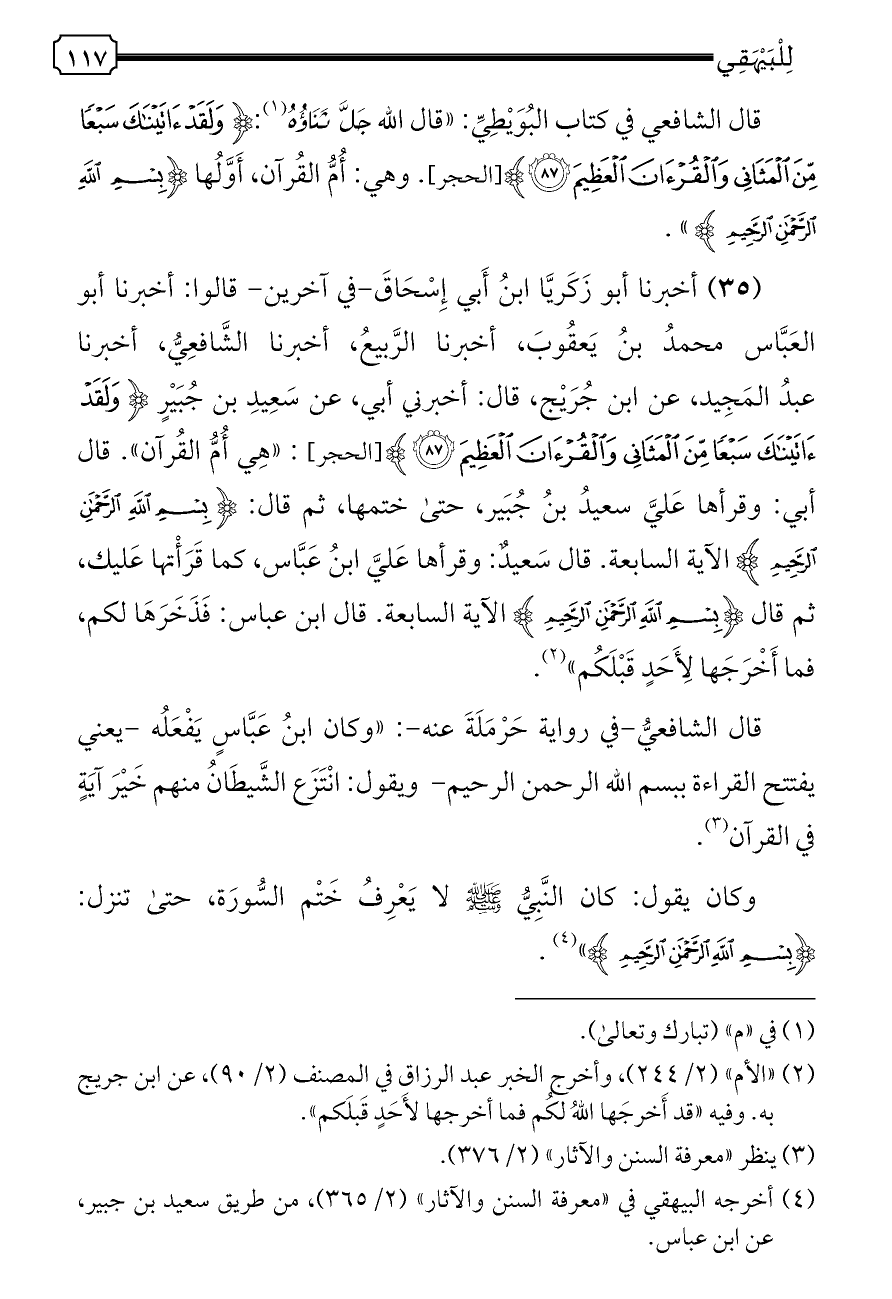 لِلْبَيْهَقِي ١١٧
قال الشافعي في كتاب البُوَيْطِيِّ: «قال الله جَلَّ ثَنَاؤُهُ(١): ﴿وَلَقَدْ ءَاتَيْنَٰكَ سَبْعًا
مِّنَ ٱلْمَثَانِى وَٱلْقُرْءَانَ ٱلْعَظِيمَ ٨٧﴾ [الحجر]. وهي: أُمُّ القُرآن، أَوَّلُها ﴿بِسْمِ ٱللَّهِ
ٱلرَّحْمَٰنِ ٱلرَّحِيمِ﴾» .
(٣٥) أخبرنا أبو زَكَرِيَّا ابنُ أَبي إِسْحَاقَ-في آخرين- قالوا: أخبرنا أبو
العَبَّاس محمدُ بنُ يَعقُوبَ، أخبرنا الرَّبيعُ، أخبرنا الشَّافعِيُّ، أخبرنا
عبدُ المَجِيد، عن ابن جُرَيْج، قال: أخبرني أبي، عن سَعِيدِ بن جُبَيْرٍ ﴿وَلَقَدْ
ءَاتَيْنَٰكَ سَبْعًا مِّنَ ٱلْمَثَانِى وَٱلْقُرْءَانَ ٱلْعَظِيمَ ٨٧﴾ [الحجر] : «هِي أُمُّ القُرآن». قال
أبي: وقرأها عَليَّ سعيدُ بنُ جُبَير، حتىٰ ختمها، ثم قال: ﴿بِسْمِ ٱللَّهِ ٱلرَّحْمَٰنِ
ٱلرَّحِيمِ﴾ الآية السابعة. قال سَعيدٌ: وقرأها عَليَّ ابنُ عَبَّاس، كما قَرَأْتها عَليك،
ثم قال ﴿بِسْمِ ٱللَّهِ ٱلرَّحْمَٰنِ ٱلرَّحِيمِ﴾ الآية السابعة. قال ابن عباس: فَذَخَرَهَا لكم،
فما أَخْرَجَها لِأَحَدٍ قَبْلَكُم»(٢).
قال الشافعيُّ-في رواية حَرْمَلَةَ عنه-: «وكان ابنُ عَبَّاسٍ يَفْعَلُه -يعني
يفتتح القراءة ببسم الله الرحمن الرحيم- ويقول: انْتَزَع الشَّيطَانُ منهم خَيْرَ آيَةٍ
في القرآن(٣).
وكان يقول: كان النَّبِيُّ ﷺ لا يَعْرِفُ خَتْم السُّورَة، حتىٰ تنزل:
﴿بِسْمِ ٱللَّهِ ٱلرَّحْمَٰنِ ٱلرَّحِيمِ﴾»(٤) .
(١) في «م» (تبارك وتعالىٰ).
(٢) «الأم» (٢/ ٢٤٤)، وأخرج الخبر عبد الرزاق في المصنف (٢/ ٩٠)، عن ابن جريج
به. وفيه «قد أَخرجَها اللهُ لكُم فما أخرجها لأَحَدٍ قَبلَكم».
(٣) ينظر «معرفة السنن والآثار» (٢/ ٣٧٦).
(٤) أخرجه البيهقي في «معرفة السنن والآثار» (٢/ ٣٦٥)، من طريق سعيد بن جبير،
عن ابن عباس.